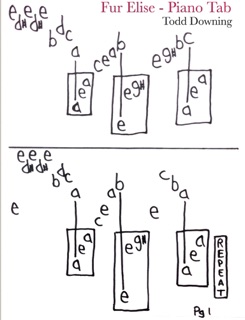 Fur Elise - Piano Tab
Todd Downing
e e e
d# d# b d c
a c e a b e g# b c
a e a
e e g#
a e a
e e e
d# d# b d c
e a c e a b e c b a
a e a
e e g#
a e a
REPEAT
Pg 1